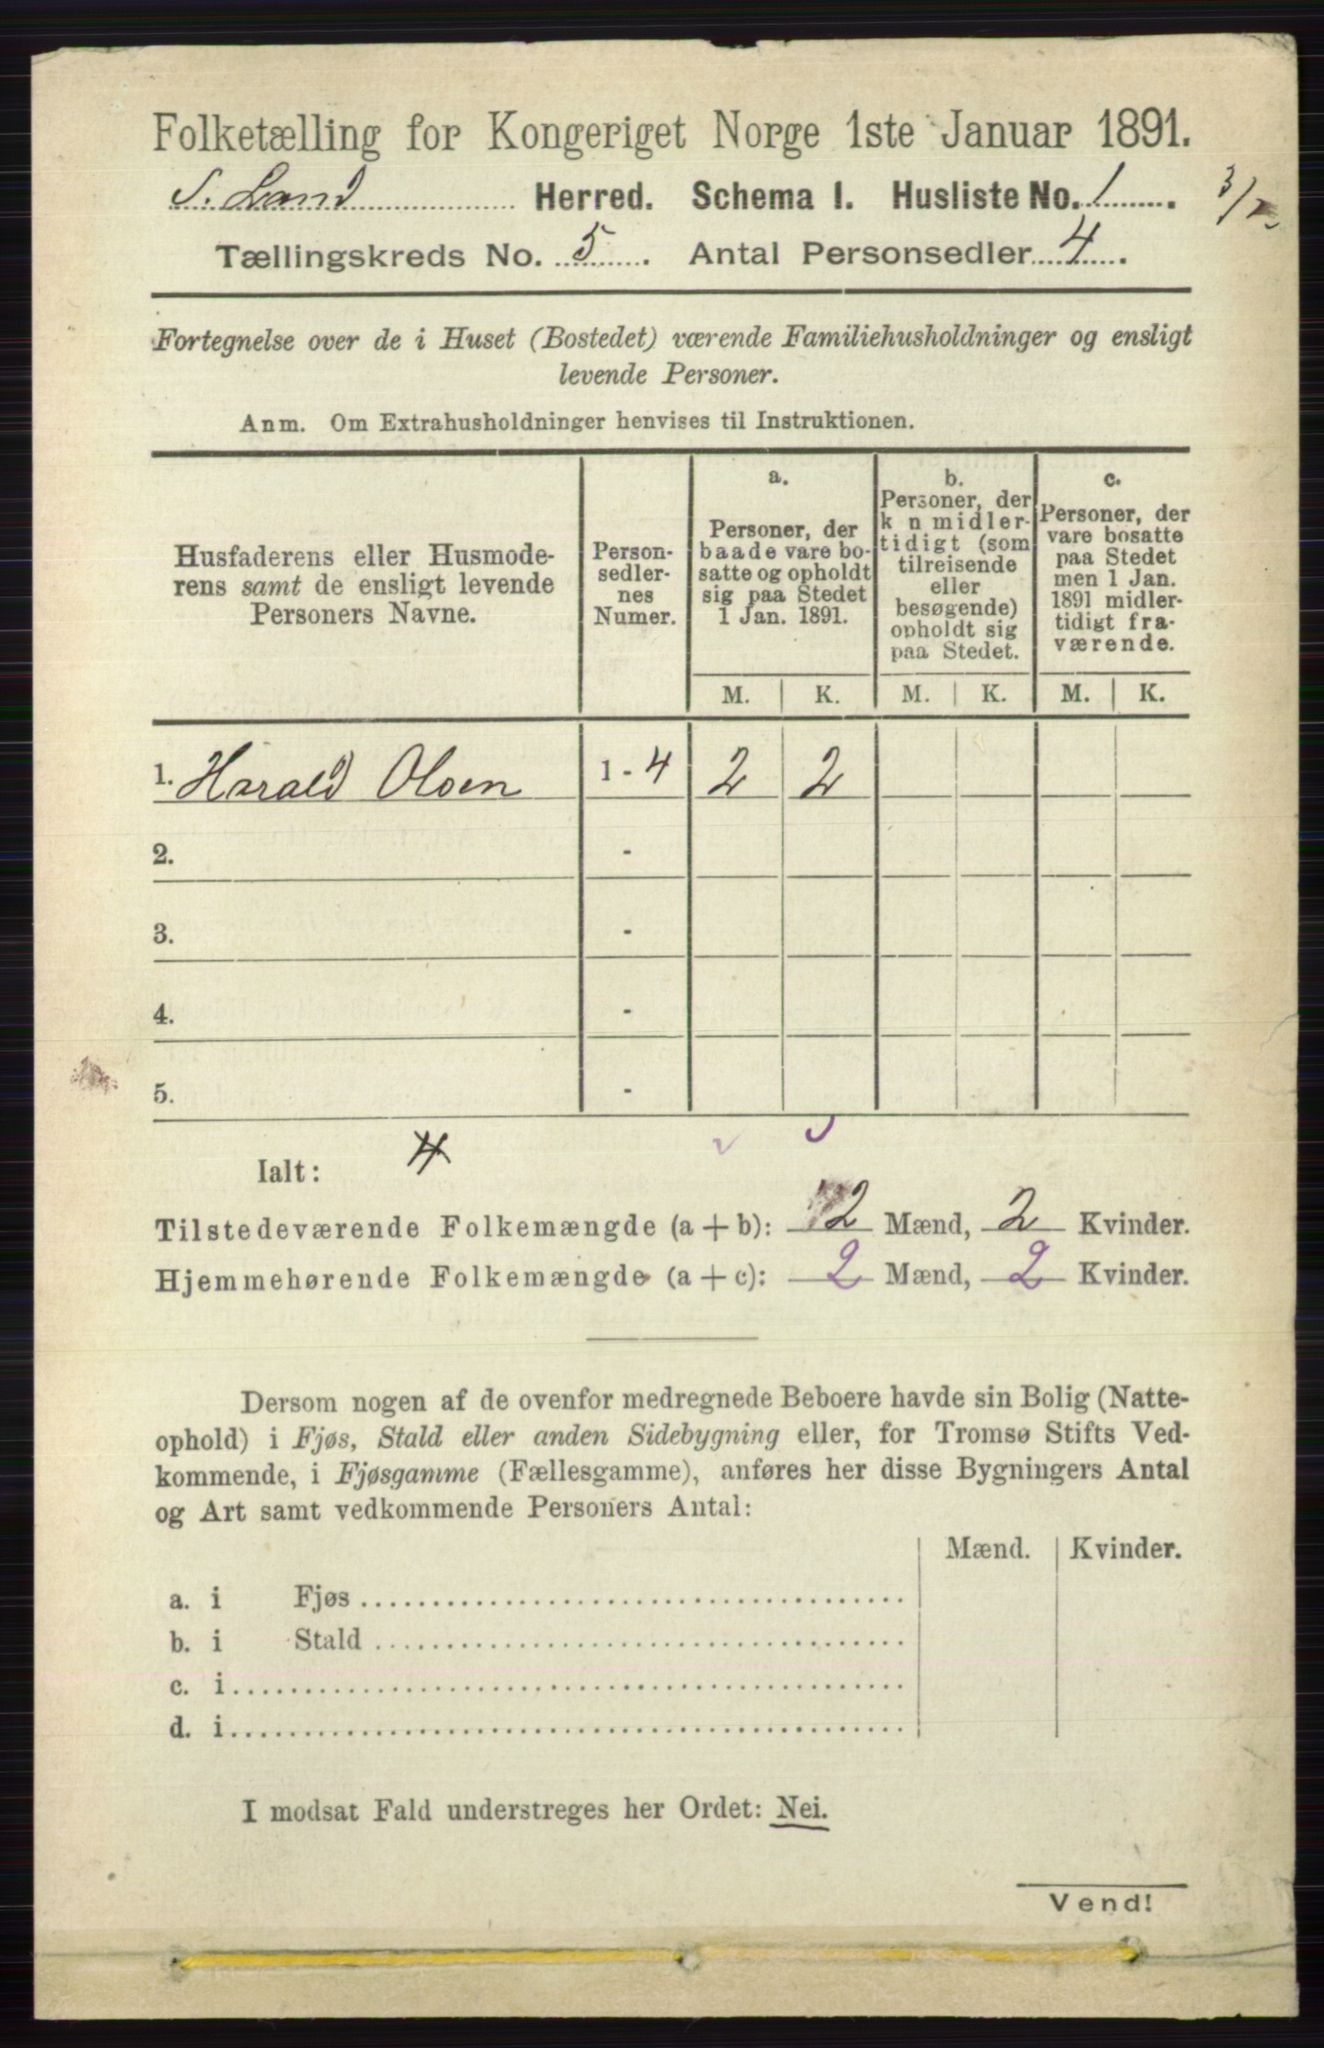 Folketælling for Kongeriget Norge 1ste Januar 1891.
S. Land Herred. Schema I. Husliste No. 1.
Tællingskreds No. 5. Antal Personsedler 4.
Fortegnelse over de i Huset (Bostedet) værende Familiehusholdninger og ensligt
levende Personer.
Anm. Om Extrahusholdninger henvises til Instruktionen.
Husfaderens eller Husmode-
rens samt de ensligt levende
Personers Navne.
Person-
sedler-
nes
Numer.
a.
Personer, der
baade vare bo-
satte og opholdt
sig paa Stedet
1 Jan. 1891.
b.
Personer, der
k n midler-
tidigt (som
tilreisende
eller
besøgende)
opholdt sig
paa Stedet.
c.
Personer, der
vare bosatte
paa Stedet
men 1 Jan.
1891 midler-
tidigt fra-
værende.
M. K. M. K. M. K.
1. Harald Olsen 1 - 4 2 2
2. -
3. -
4. -
5. -
Ialt: 4
Tilstedeværende Folkemængde (a + b): 2 Mænd, 2 Kvinder.
Hjemmehørende Folkemængde (a + c): 2 Mænd, 2 Kvinder.
Dersom nogen af de ovenfor medregnede Beboere havde sin Bolig (Natte-
ophold) i Fjøs, Stald eller anden Sidebygning eller, for Tromsø Stifts Ved-
kommende, i Fjøsgamme (Fællesgamme), anføres her disse Bygningers Antal
og Art samt vedkommende Personers Antal:
Mænd. Kvinder.
a. i Fjøs
b. i Stald
c. i
d. i
I modsat Fald understreges her Ordet: Nei.
Vend!